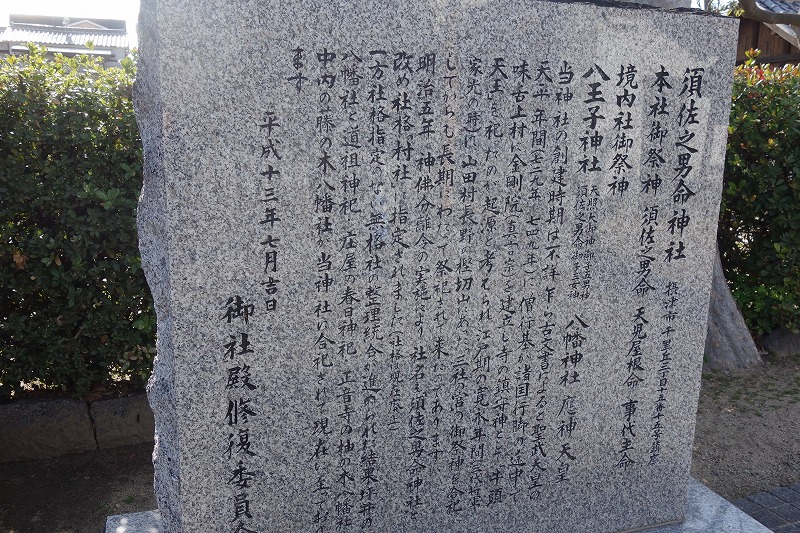 須佐之男命神社 摂津市千里丘三丁目
本社御祭神 須佐之男命 天児屋根命 事代主命
境内社御祭神
八王子神社 八幡神社 應神天皇
天照大御神御子五男神
須佐之男命御子三女神
当神社の創建時期は不詳乍ら古文書などによると聖武天皇の
天平年間(七二九年〜七四九年)に僧行基が諸国行脚の途中で
味舌上村に金剛院(真言宗)を建立し寺の鎮守神として牛頭
天王を祀ったのが起源と考えられ江戸期の寛永年間(三代将軍
家光の時)に山田村長野樫切山にあった三社之宮の御祭神を合祀
してからも長期にわたって祭祀されて来たのであります
明治五年、神佛分離令の実施により社名を須佐之男命神社と
改め社格村社に指定されました(社格現在廃止)
一方社格指定のない無格社の整理統合が進められた結果坪井の
八幡社と道祖神祀、庄屋の春日神祀、正音寺の柚の木八幡社
中内の藤の木八幡社が当神社に合祀されて現在に至って
ます
平成十三年七月吉日
御社殿修復委員会